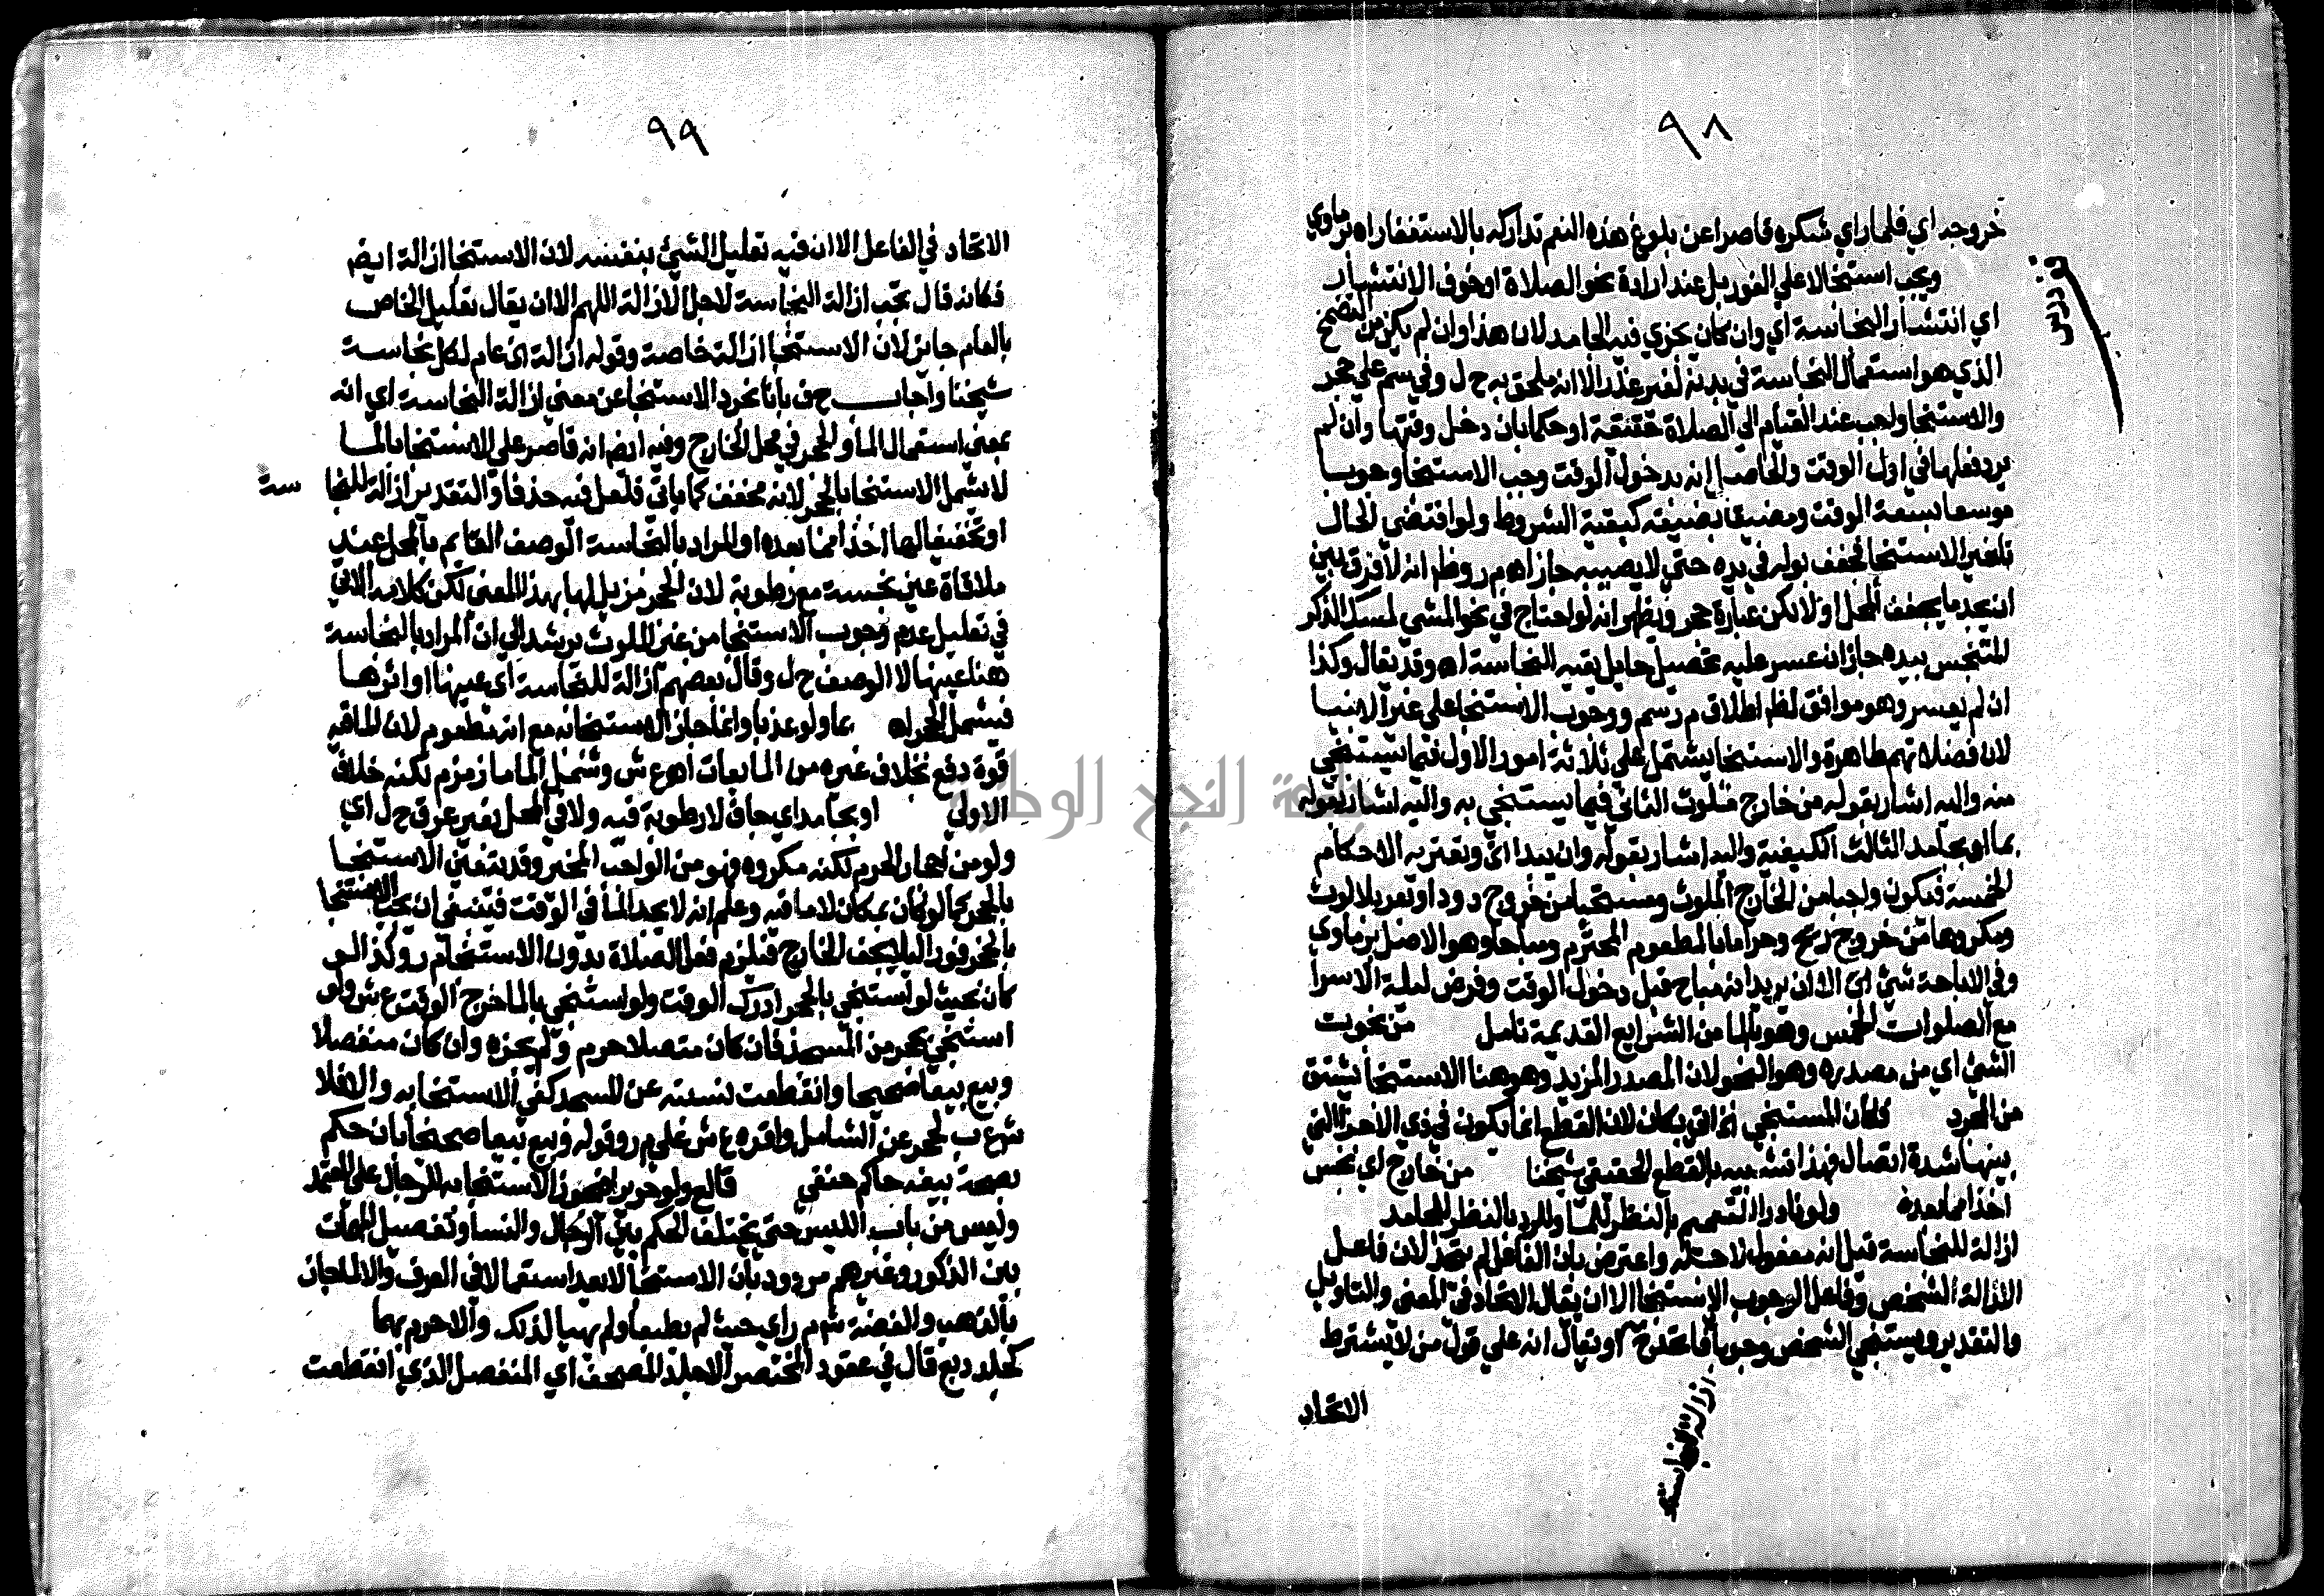 ٩٨
خروجه اي فلما راي شكره قاصرا عن بلوغ هذه النعم تداركه بالاستغفار اه برماوي
ويجب استنجا لا علي الفور بل عند ارادة نحو الصلاة او خوف الانتشار
اي انتشار النجاسة اي وان كان يجزي فيه الجامد لان هذا وان لم يكن من التضمخ
الذي هو استعمال النجاسة في بدنه لغير عذر الا انه ملحق به ح ل وفي سم علي حجر
والاستنجا واجب عند القيام الي الصلاة حقيقة او حكما بان دخل وقتها وان لم
يرد فعلها في اول الوقت والحاصل انه بدخول الوقت وجب الاستنجا وجوبا
موسعا بسعة الوقت ومضيقا بضيقه كبقية الشروط ولو اقتضي الحال
تاخير الاستنجا فجفف بوله في يده حتي لا يصيبه جاز اه م ر وظاهره انه لا فرق بين
ان يجد ما يجفف المحل او لا لكن عبارة حجر ويظهر انه لو احتاج في نحو المشي لمسك الذكر
المتنجس بيده جاز ان عسر عليه تحصيل حايل يقيه النجاسة اه وقد يقال وكذا
ان لم يعسر وهو موافق لظاهر اطلاق م ر سم ووجوب الاستنجا علي غير الانبيا
لان فضلاتهم طاهرة والاستنجا يشتمل علي ثلاثة امور الاول فيما يستنجي
منه واليه اشار بقوله من خارج ملوث الثاني فيما يستنجي به واليه اشار بقوله
بما او بجامد الثالث الكيفية واليه اشار بقوله وان يبدا الخ وتعتريه الاحكام
الخمسة فيكون واجبا من الخارج الملوث ومستحبا من خروج دود او بعر بلا لوث
ومكروها من خروج ريح وحراما بالمطعوم المحترم ومباحا وهو الاصل برماوي
وفي الاباحة شي اي الا ان يريد انه مباح قبل دخول الوقت وفرض ليلة الاسرا
مع الصلوات الخمس وهو بالما من الشرايع القديمة تامل من نجوت
الشي اي من مصدره وهو النجو لان المصدر المزيد وهو هنا الاستنجا يشتق
من المجرد فكان المستنجي الخ اتي بكان لان القطع انما يكون في ذي الاجزا التي
بينها شدة اتصال فهذا تشبيه بالقطع الحقيقي شيخنا من خارج اي نجس
اخذا مما بعده ولو نادرا التعميم بالنظر للما والرد بالنظر للجامد
ازالة للنجاسة قيل انه مفعول لاجله واعترض بان الفاعل لم يتحد لان فاعل
الازالة الشخص وفاعل الوجوب الاستنجا الا ان يقال الاتحاد في المعني والتاويل
والتقدير ويستنجي الشخص وجوبا فاتحد ح او يقال انه علي قول من لا يشترط
ازالة النجاسة
الاتحاد
ف درس
٩٩
الاتحاد في الفاعل الا ان فيه تعليل الشي بنفسه لان الاستنجا ازالة ايضا
فكانه قال تجب ازالة النجاسة لاجل الازالة اللهم الا ان يقال تعليل الخاص
بالعام جايز لان الاستنجا ازالة خاصة وقوله ازالة الخ عام لكل نجاسة
شيخنا واجاب ح ف بانا نجرد الاستنجا عن معني ازالة النجاسة اي انه
بمعني استعمال الما والحجر في محل الخارج وفيه ايضا انه قاصر علي الاستنجا بالما
لا يشمل الاستنجا بالحجر لانه مخفف كما ياتي فلعل فيه حذفا والتقدير ازالة للنجا سة
او تخفيفا لها اخذا مما بعده او المراد بالنجاسة الوصف القايم بالمحل عند
ملاقاة عين نجسة مع رطوبة لان الحجر مزيل لها بهذا المعني لكن كلامه الاتي
في تعليل عدم وجوب الاستنجا من غير الملوث يرشد الي ان المراد بالنجاسة
هنا عينها لا الوصف ح ل وقال بعضهم ازالة للنجاسة اي عينها او اثرها
فيشمل الحجر اه بما ولو عذبا وانما جاز الاستنجا به مع انه مطعوم لان الما فيه
قوة دفع بخلاف غيره من المايعات اه ع ش وشمل الما ما زمزم لكنه خلاف
الاولي او بجامد اي جاف لا رطوبة فيه ولا في المحل بغير عرق ح ل اي
ولو من احجار الحرم لكنه مكروه فهو من الواجب المخير وقد يتعين الاستنجا
بالحجر كما لو كان بمكان لا ما فيه وعلم انه لا يجد الما في الوقت فينبغي ان يجب الاستنجا
بالحجر فورا ليلا يجف الخارج فيلزم فعل الصلاة بدون الاستنجا م ر وكذا لو
كان بحيث لو استنجي بالحجر ادرك الوقت ولو استنجي بالما خرج الوقت ع ش ولو
استنجي بحجر من المسجد فان كان متصلا حرم ولم يجزه وان كان منفصلا
وبيع بيعا صحيحا وانقطعت نسبته عن المسجد كفي الاستنجا به والا فلا
شرع ب لحجر عن الشامل واقره ع ش علي م ر وقوله وبيع بيعا صحيحا بان حكم
بصحة بيعه حاكم حنفي قالع ولو حريرا فيجوز الاستنجا به للرجال علي المعتمد
وليس من باب اللبس حتي يختلف الحكم بين الرجال والنسا وتفصيل المهمات
بين الذكور وغيرهم مردود بان الاستنجا لا يعد استعمالا في العرف والا لما جاز
بالذهب والفضة شرح م ر اي حيث لم يطبعا ولم يهيا لذلك والا حرم بهما
كجلد دبغ قال في عقود المختصر الا جلد المصحف اي المنفصل الذي انقطعت